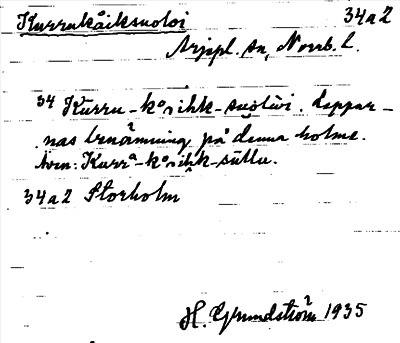 Kurrukåiksuoloi 34a2
Arjpl. sn, Norrb. l.
34 Kurru-kårihk-suoluvi. Lappar-
nas benämning på denna holme.
Även: Kurra-kårihk-süllu.
34a2 Storholm
H. Grundström 1935